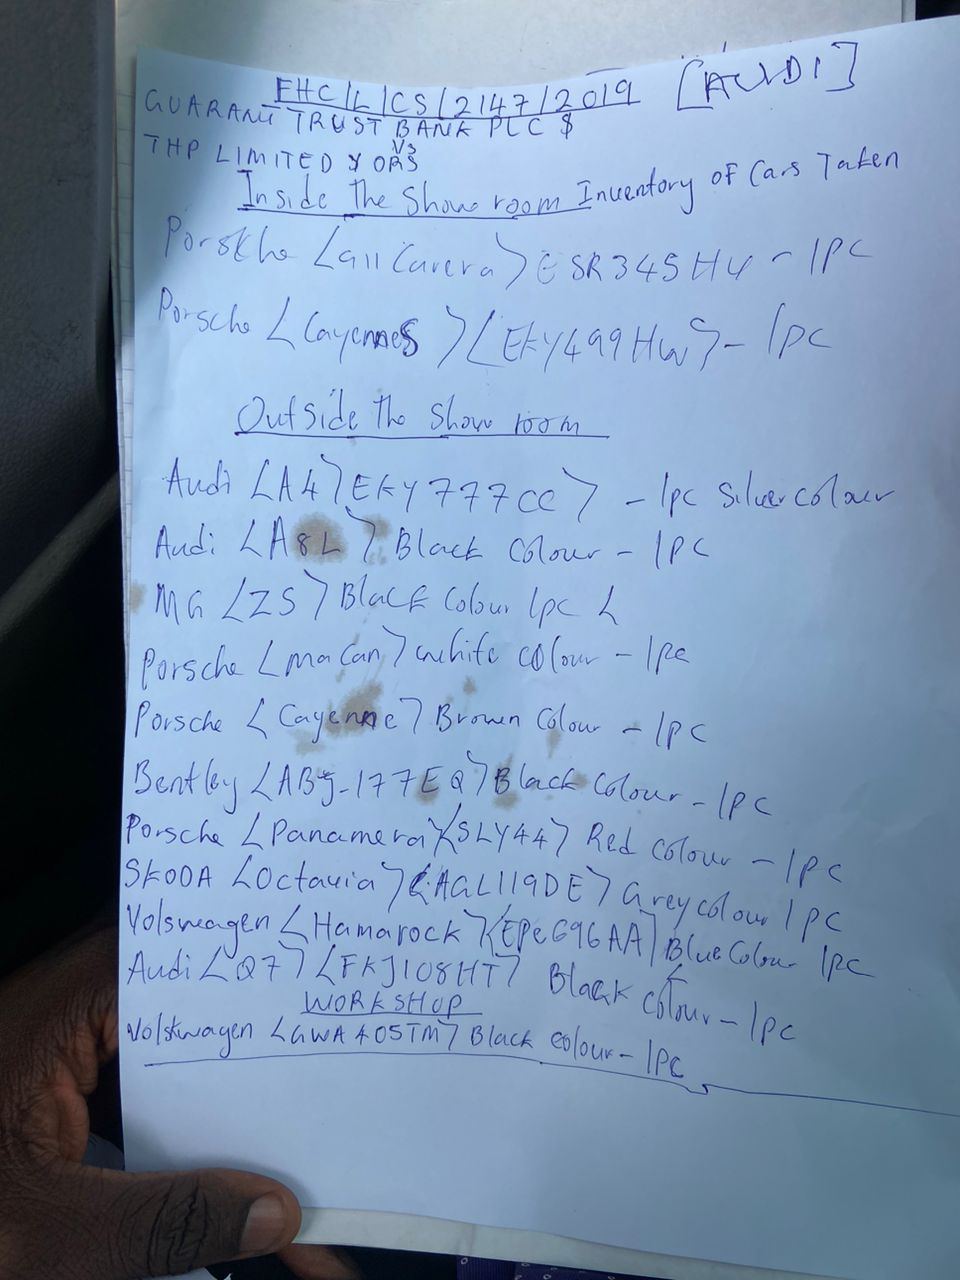 FHC/L/CS/2147/2019 [AUDI]
GUARANT TRUST BANK PLC $
Vs
THP LIMITED & ORS
Inside The Show room Inventory of Cars Taken
Porskhe <911 Carera> ESR345HU - 1PC
Porsche <Cayennes> <EKY499HW> - 1pc
Outside the Show room
Audi <A4> EKY777CC> - 1pc Silver colour
Audi <A8L> Black Colour - 1PC
MG <ZS> Black Colour 1pc <
Porsche <macan> white colour - 1pc
Porsche <Cayenne> Brown Colour - 1PC
Bentley <ABJ-177EQ> Black Colour - 1PC
Porsche <Panamera> <SLY44> Red colour - 1PC
SKODA <Octavia> <AGL119DE> Grey colour 1PC
Volswagen <Hamarock> <EPE696AA] Blue Colour 1PC
Audi <Q7> <FKJ108HT> Black colour - 1PC
WORKSHOP
Volskwagen <GWA405TM> Black colour - 1PC